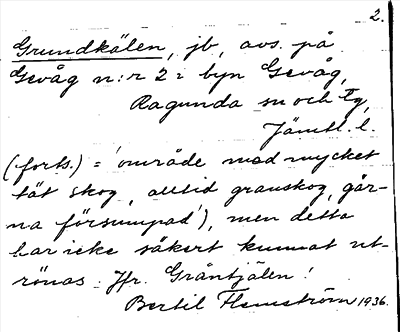 2.
Grundkälen, jb, avs. på
Gevåg n:r 2 i byn Gevåg,
Ragunda sn och tg,
Jämtl. l.
(forts.) = 'område med mycket
tät skog, alltid granskog, gär-
na försumpad'), men detta
har icke säkert kunnat ut-
rönas. Jfr. Gråntjälen!
Bertil Flemström 1936.